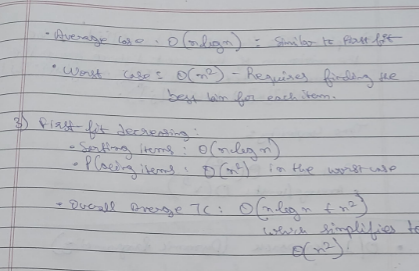 • Average case : O(nlogn) = Similar to first fit
• Worst case = O(n²) - Requires finding the
best bin for each item.
3) First-fit decreasing :
• Sorting items : O(nlogn)
• Placing items : O(n²) in the worst case
• Overall average TC : O(nlogn + n²)
which simplifies to
O(n²)